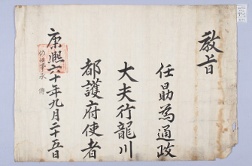 教旨
任勗為通政
大夫行龍川
都護府使者
康熙六十年九月二十五日